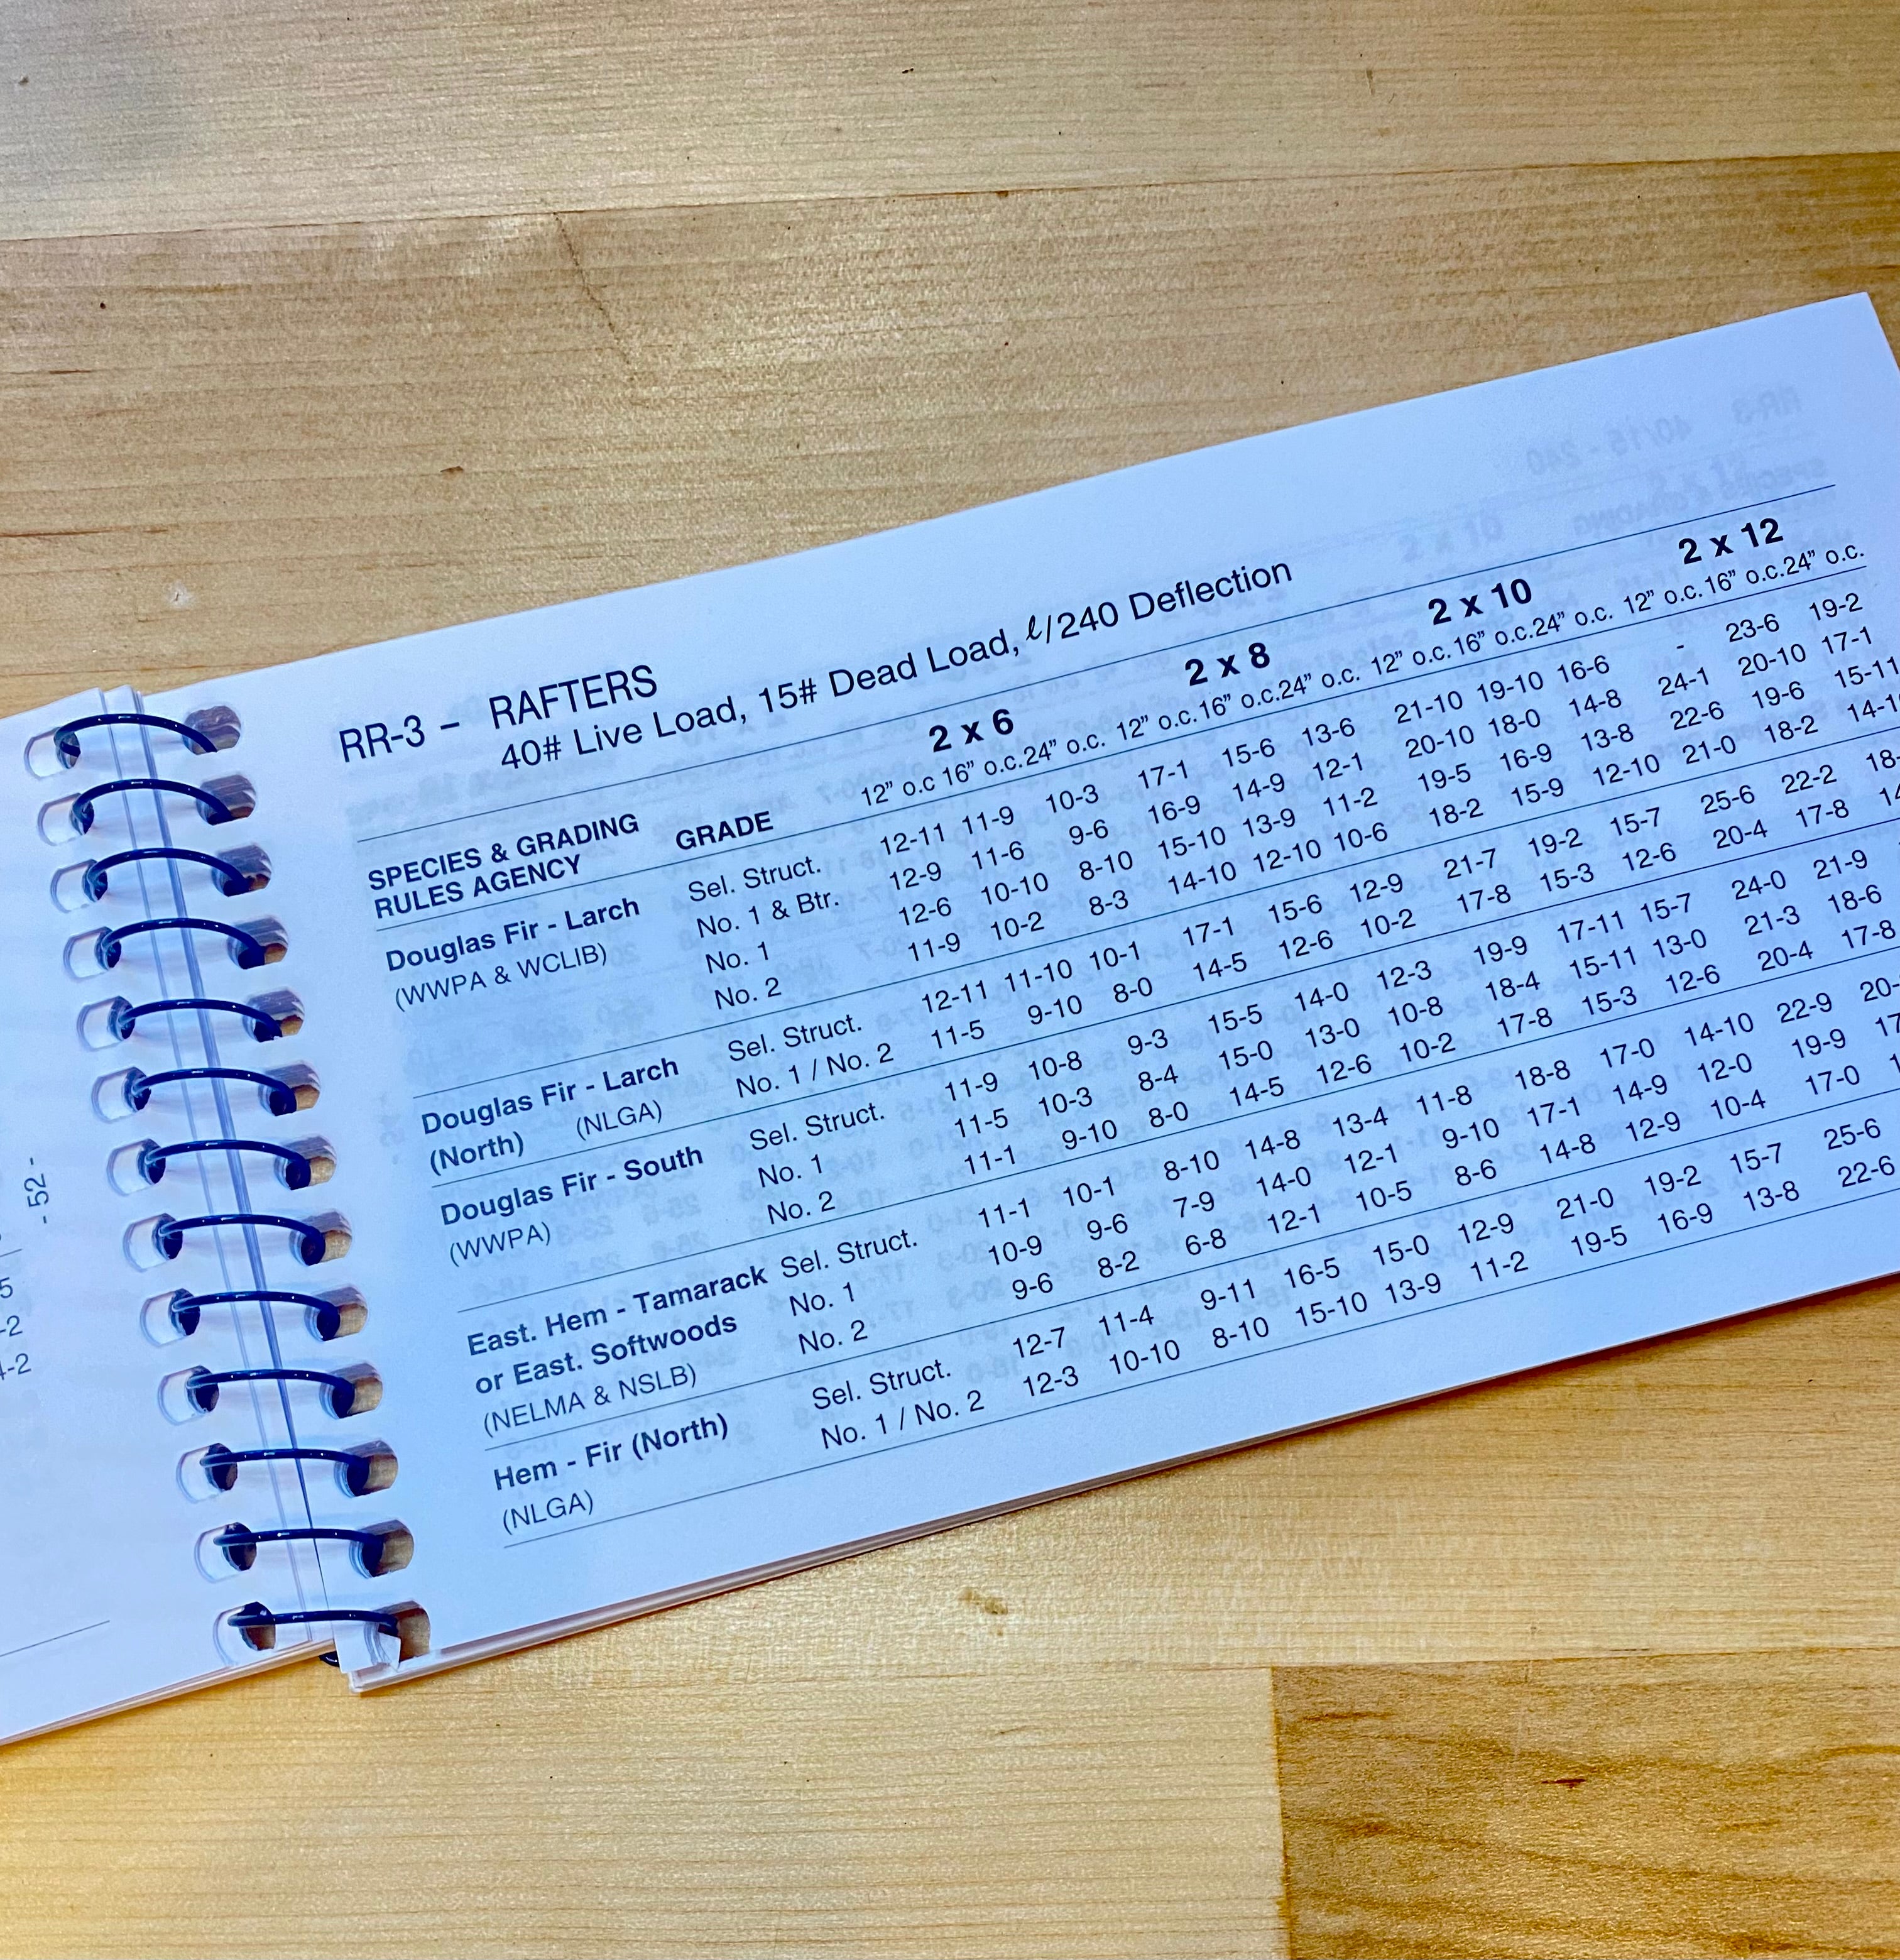 - 52 -
RR-3 – RAFTERS
40# Live Load, 15# Dead Load, ℓ/240 Deflection
2 x 6 2 x 8 2 x 10 2 x 12
SPECIES & GRADING RULES AGENCY GRADE 12” o.c 16” o.c. 24” o.c. 12” o.c. 16” o.c. 24” o.c. 12” o.c. 16” o.c. 24” o.c. 12” o.c. 16” o.c. 24” o.c.
Douglas Fir - Larch Sel. Struct. 12-11 11-9 10-3 17-1 15-6 13-6 21-10 19-10 16-6 - 23-6 19-2
(WWPA & WCLIB) No. 1 & Btr. 12-9 11-6 9-6 16-9 14-9 12-1 20-10 18-0 14-8 24-1 20-10 17-1
No. 1 12-6 10-10 8-10 15-10 13-9 11-2 19-5 16-9 13-8 22-6 19-6 15-11
No. 2 11-9 10-2 8-3 14-10 12-10 10-6 18-2 15-9 12-10 21-0 18-2
Douglas Fir - Larch Sel. Struct. 12-11 11-10 10-1 17-1 15-6 12-9 21-7 19-2 15-7 25-6 22-2
(North) (NLGA) No. 1 / No. 2 11-5 9-10 8-0 14-5 12-6 10-2 17-8 15-3 12-6 20-4 17-8
Douglas Fir - South Sel. Struct. 11-9 10-8 9-3 15-5 14-0 12-3 19-9 17-11 15-7 24-0 21-9
(WWPA) No. 1 11-5 10-3 8-4 15-0 13-0 10-8 18-4 15-11 13-0 21-3 18-6
No. 2 11-1 9-10 8-0 14-5 12-6 10-2 17-8 15-3 12-6 20-4 17-8
East. Hem - Tamarack Sel. Struct. 11-1 10-1 8-10 14-8 13-4 11-8 18-8 17-0 14-10 22-9
or East. Softwoods No. 1 10-9 9-6 7-9 14-0 12-1 9-10 17-1 14-9 12-0 19-9
(NELMA & NSLB) No. 2 9-6 8-2 6-8 12-1 10-5 8-6 14-8 12-9 10-4 17-0
Hem - Fir (North) Sel. Struct. 12-7 11-4 9-11 16-5 15-0 12-9 21-0 19-2 15-7 25-6
(NLGA) No. 1 / No. 2 12-3 10-10 8-10 15-10 13-9 11-2 19-5 16-9 13-8 22-6